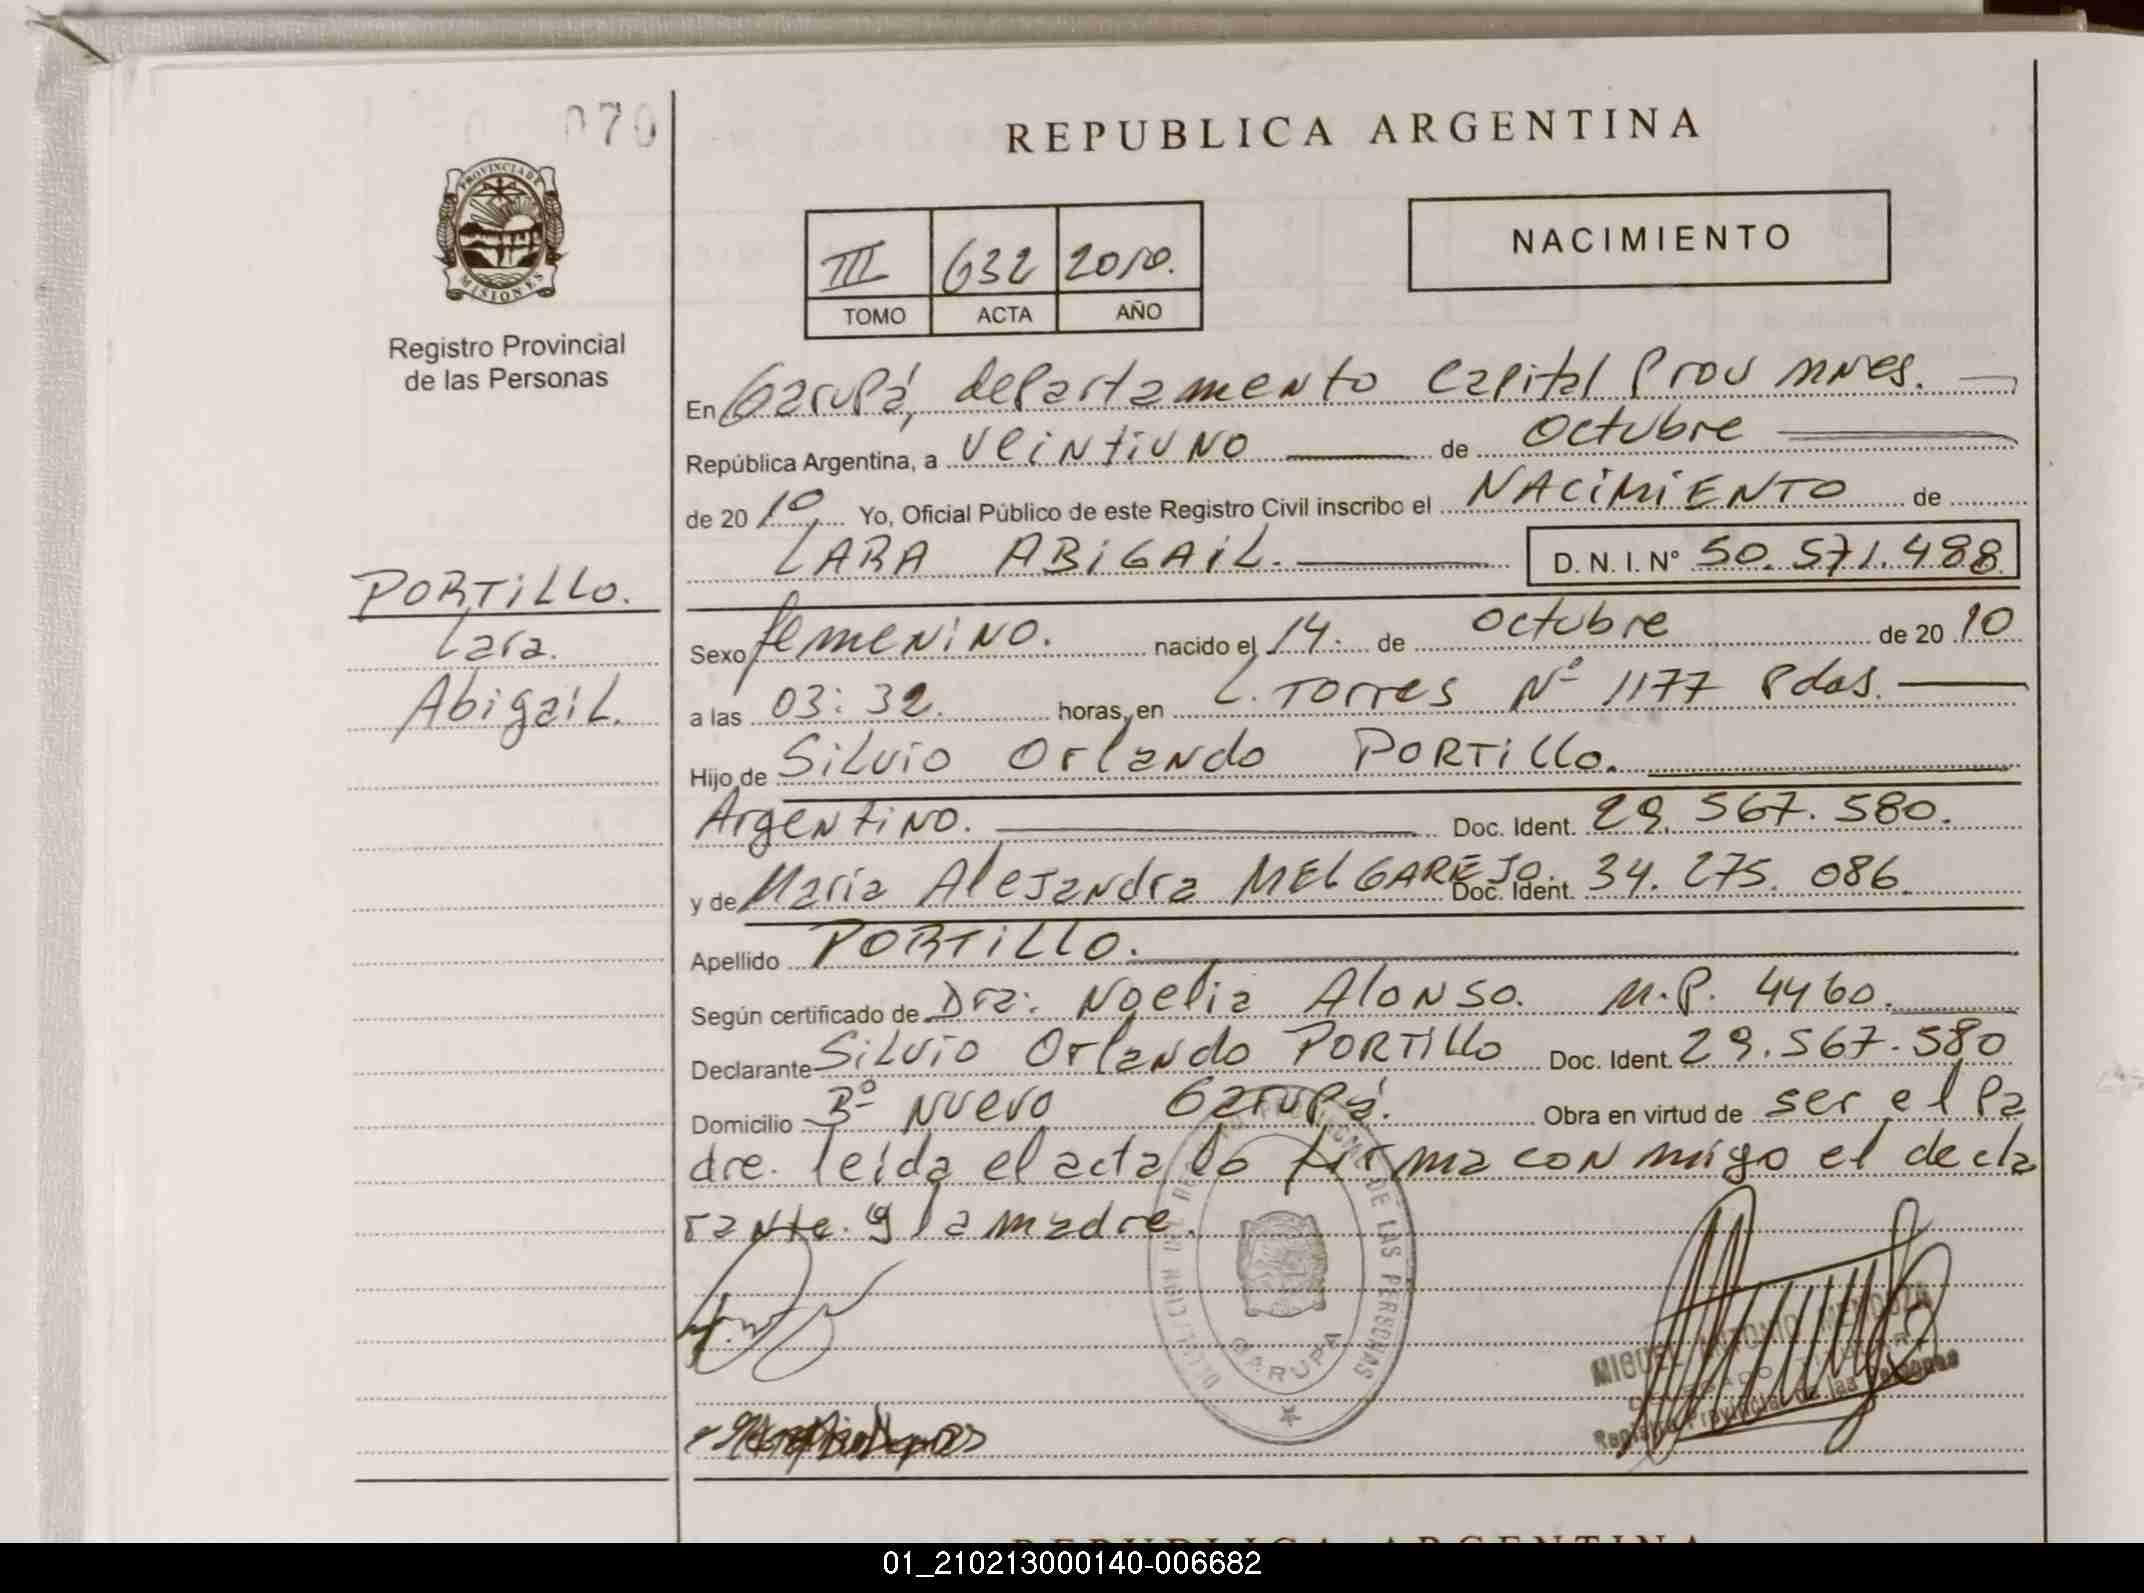 070
PROVINCIA DE
MISIONES
Registro Provincial
de las Personas
PORTILLO.
Lara.
Abigail.
REPUBLICA ARGENTINA
III 632 2010.
TOMO ACTA AÑO
NACIMIENTO
En Garupá, departamento Capital Prov Mnes.
República Argentina, a veintiuno de octubre
de 2010, Yo, Oficial Público de este Registro Civil inscribo el NACIMIENTO de
LARA ABIGAIL. D. N. I. N° 50.571.488
Sexo femenino. nacido el 14. de octubre de 2010
a las 03:32. horas, en L. Torres Nº 1177 Pdas.
Hijo de Silvio Orlando PORTILLO.
Argentino. Doc. Ident. 29.567.580.
y de Maria Alejandra MELGAREJO. Doc. Ident. 34.275.086.
Apellido PORTILLO.
Según certificado de Dra: Noelia Alonso. M.P. 4460.
Declarante Silvio Orlando PORTILLO Doc. Ident. 29.567.580
Domicilio Bº Nuevo Garupá. Obra en virtud de ser el pa
dre. leída el acta lo firma con migo el decla
rante. y la madre.
DE LAS PERSONAS
GARUPA
MIGUEL ANTONIO MENDOZA
Registro Provincial de las Personas
REPUBLICA ARGENTINA
01_210213000140-006682